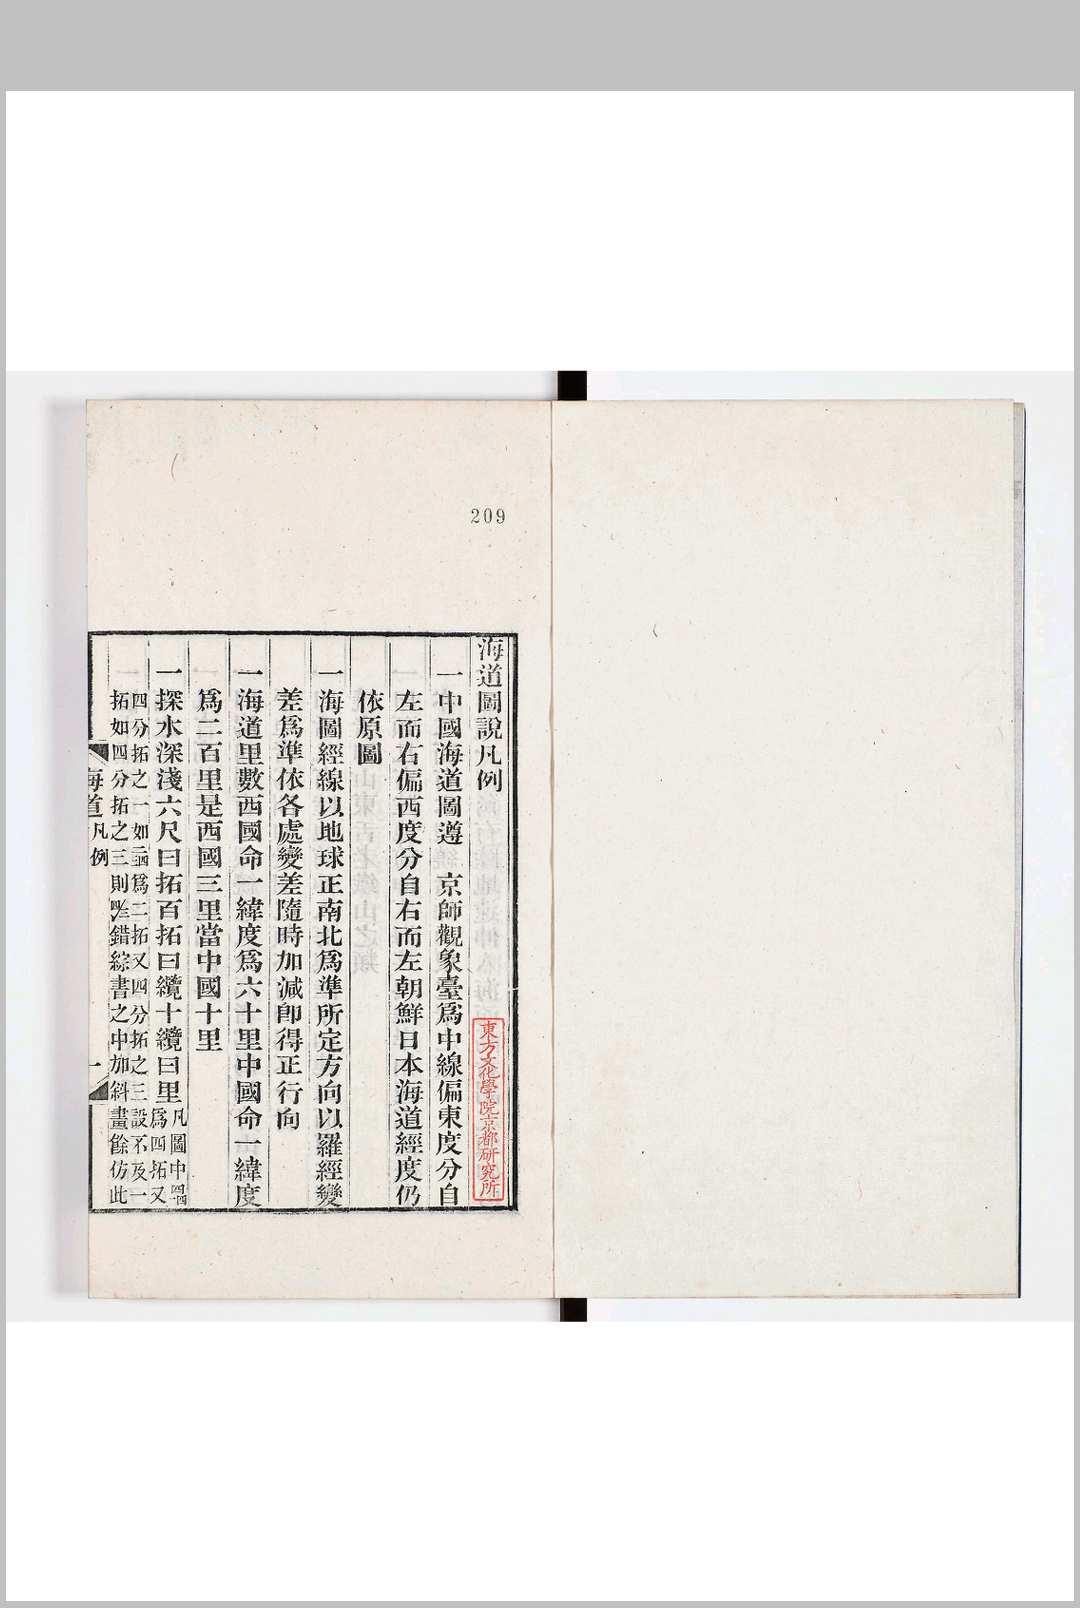 209
海道圖說凡例
一中國海道圖遵　京師觀象臺爲中線偏東度分自
左而右偏西度分自右而左朝鮮日本海道經度仍
依原圖
一海圖經線以地球正南北爲準所定方向以羅經變
差爲準依各處變差隨時加減卽得正行向
一海道里數西國命一緯度爲六十里中國命一緯度
爲二百里是西國三里當中國十里
一探水深淺六尺曰拓百拓曰纜十纜曰里
凡圖中
爲四拓又
四分拓之一如二四爲二拓又四分拓之三設不及一
拓如四分拓之三則錯綜書之中加斜畫餘仿此
海道凡例
一
東方文化學院京都研究所